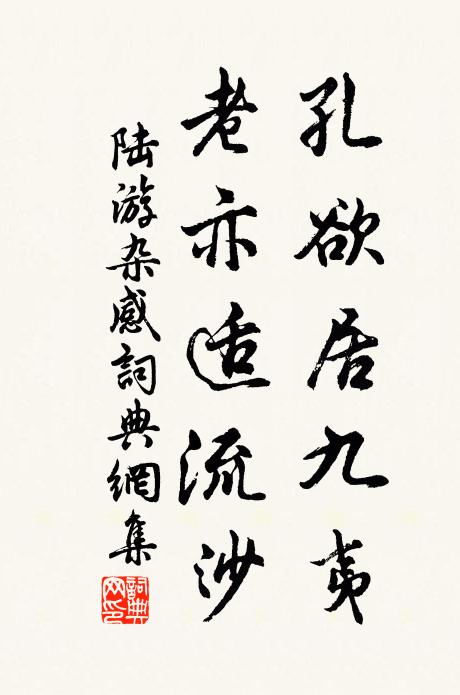 孔欲居九夷
老亦适流沙
陆游杂感詞典網集
詞典網印